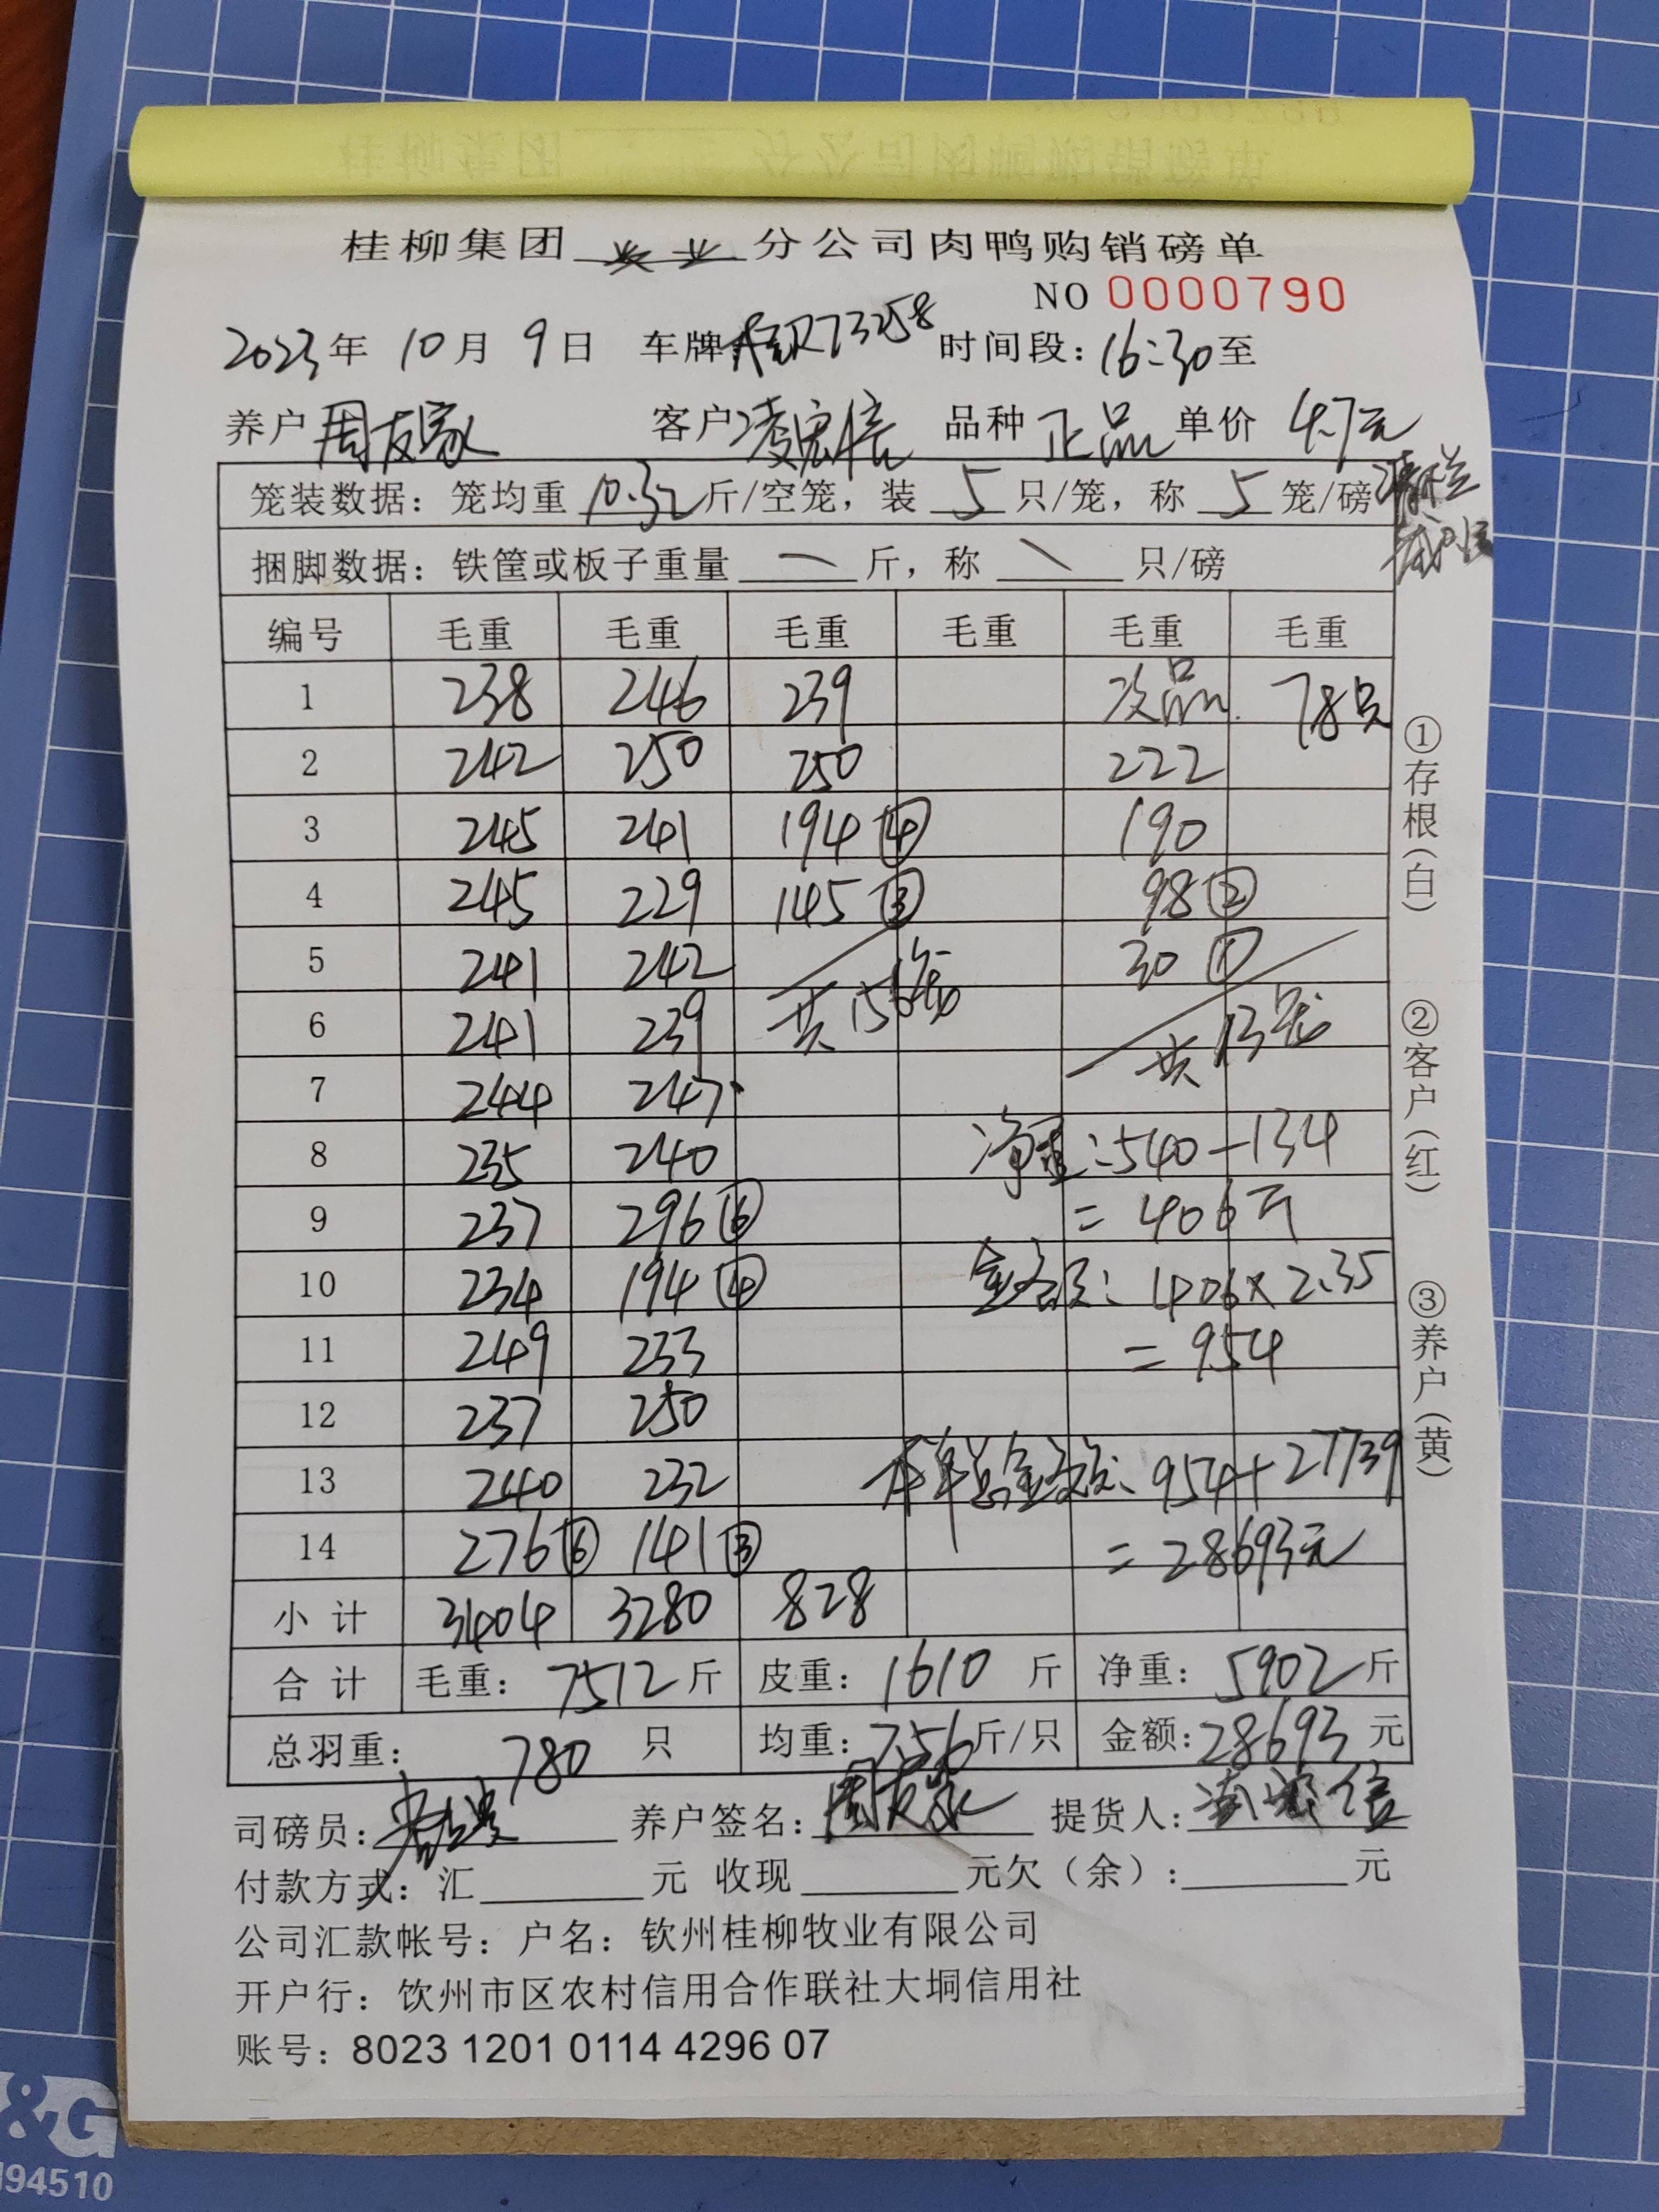 桂柳集团 分公司肉鸭购销磅单
NO 0000790
2023年 10月 9日 车牌 73258 时间段：16:30至
养户 周友家 客户 凌宏信 品种 正品 单价 4.7元
笼装数据：笼均重 10.32 斤/空笼，装 5 只/笼，称 5 笼/磅
捆脚数据：铁筐或板子重量 — 斤，称 \ 只/磅
编号 毛重 毛重 毛重 毛重 毛重 毛重
1 238 246 239 次品 78只
2 242 250 250 222
3 245 241 194④ 190
4 245 229 145③ 98②
5 241 242 30①
6 241 239 共156笼 共13笼
7 244 247
8 235 240 净重：540-134
9 237 296⑥ =406斤
10 234 194④ 金额：406×2.35
11 249 233 =954
12 237 250
13 240 232 本单总金额：954+27739
14 276⑥ 141③ =28693元
小计 3404 3280 828
合计 毛重：7512斤 皮重：1610 斤 净重：5902斤
总羽重：780 只 均重：7.56斤/只 金额：28693 元
司磅员： 养户签名：周友家 提货人：凌宏信
付款方式：汇 元 收现 元欠（余）： 元
公司汇款帐号：户名：钦州桂柳牧业有限公司
开户行：饮州市区农村信用合作联社大垌信用社
账号：8023 1201 0114 4296 07
①存根（白） ②客户（红） ③养户（黄）
&G
94510